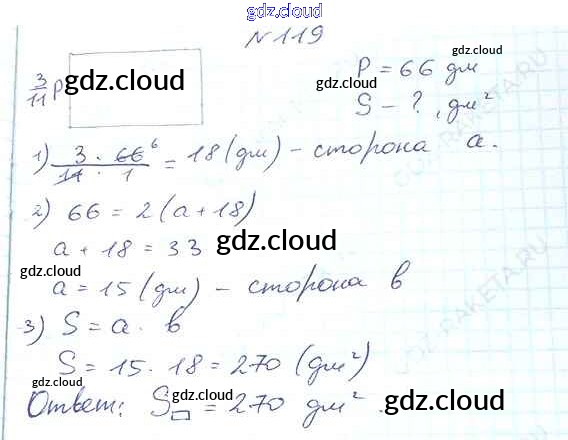 gdz.cloud
gdz.cloud
N 119
gdz.cloud
3/11 P gdz.cloud P = 66 дм
S - ? , дм²
gdz.cloud
1) 3 · 66 6 / 11 · 1 = 18 (дм) - сторона a.
2) 66 = 2 (a + 18)
a + 18 = 33 gdz.cloud
gdz.cloud
a = 15 (дм) - сторона в
gdz.cloud
3) S = a · в
S = 15 · 18 = 270 (дм²)
gdz.cloud gdz.cloud
Ответ: S□ = 270 дм².
gdz.cloud gdz.cloud
GDZ-RAKETA.RU
GDZ-RAKETA.RU